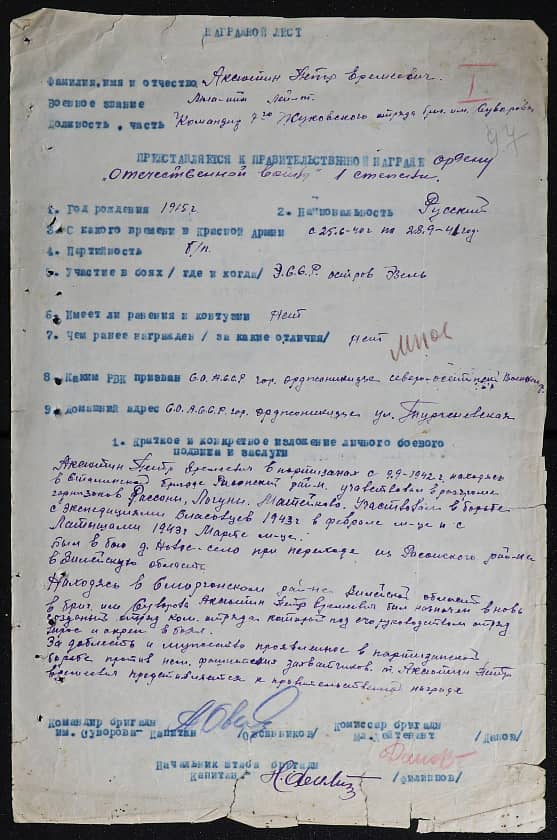 НАГРАДНОЙ ЛИСТ
Фамилия, имя и отчество Аксютин Петр Еремеевич.
I
Военное звание Мл. Лейт.
Должность, часть Командир 7го Жуковского отряда бриг. им. Суворова
97
ПРЕДСТАВЛЯЕТСЯ К ПРАВИТЕЛЬСТВЕННОЙ НАГРАДЕ ордену
"Отечественной войны" 1 степени.
1. Год рождения 1915 г. 2. Национальность Русский
3. С какого времени в Красной Армии с 25.6-40 г по 28.9-41 год.
4. Партийность б/п.
5. Участие в боях / где и когда/ Э.С.С.Р. остров Эзель
6. Имеет ли ранения и контузии Нет
7. Чем ранее награжден / за какие отличия/ Нет
8. Каким РВК призван С.О.А.С.С.Р гор. орджоникидзе северо-осетинский
9. Домашний адрес С.О.А.С.С.Р. гор. орджоникидзе ул. Тургеневская
1. Краткое и конкретное изложение личного боевого
подвига и заслуги
Аксютин Петр Еремеевич в партизанах с 9.9-1942 г. находясь
в Сталинской бригаде района. участвовал в разгроме
гарнизонов Россоны, Участвовал в борьбе
с Экспедициями Власовцев 1943 г в феврале м-це и с
Латышами 1943 г Марте м-це.
Был в бою д. Новое-село при переходе из Россонского рай-на
в Вилейскую область.
Находясь в Сморгонском рай-не Вилейской области
в бриг. им Суворова Аксютин Петр Еремеевич был назначен в вновь
созданый отряд ком. отряда. которой под его руководством отряд
вырос и окреп в боях.
За доблесть и мужество проявленное в партизанской
борьбе против нем. фашистских захватчиков. т. Аксютин Петр
Еремеевич представляется к правительственной награде
Командир бригады Комиссар бригады
им. Суворова- Капитан /Овсянников/ Мл. Лейтенант /Дапов/
Начальник штаба бригады
Капитан /Филиппов/